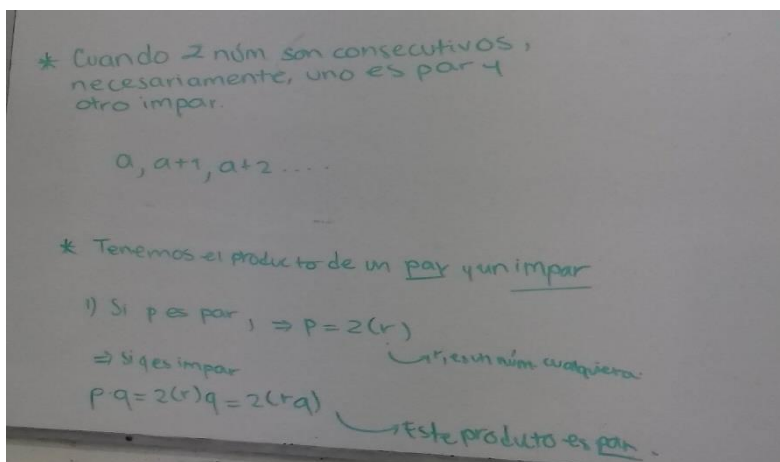 * Cuando 2 núm son consecutivos,
necesariamente, uno es par y
otro impar.
a, a+1, a+2 ....
* Tenemos el producto de un par y un impar
1) Si p es par, ⇒ p = 2(r)
r, es un núm cualquiera.
⇒ si q es impar
p·q = 2(r)q = 2(rq)
Este produto es par.